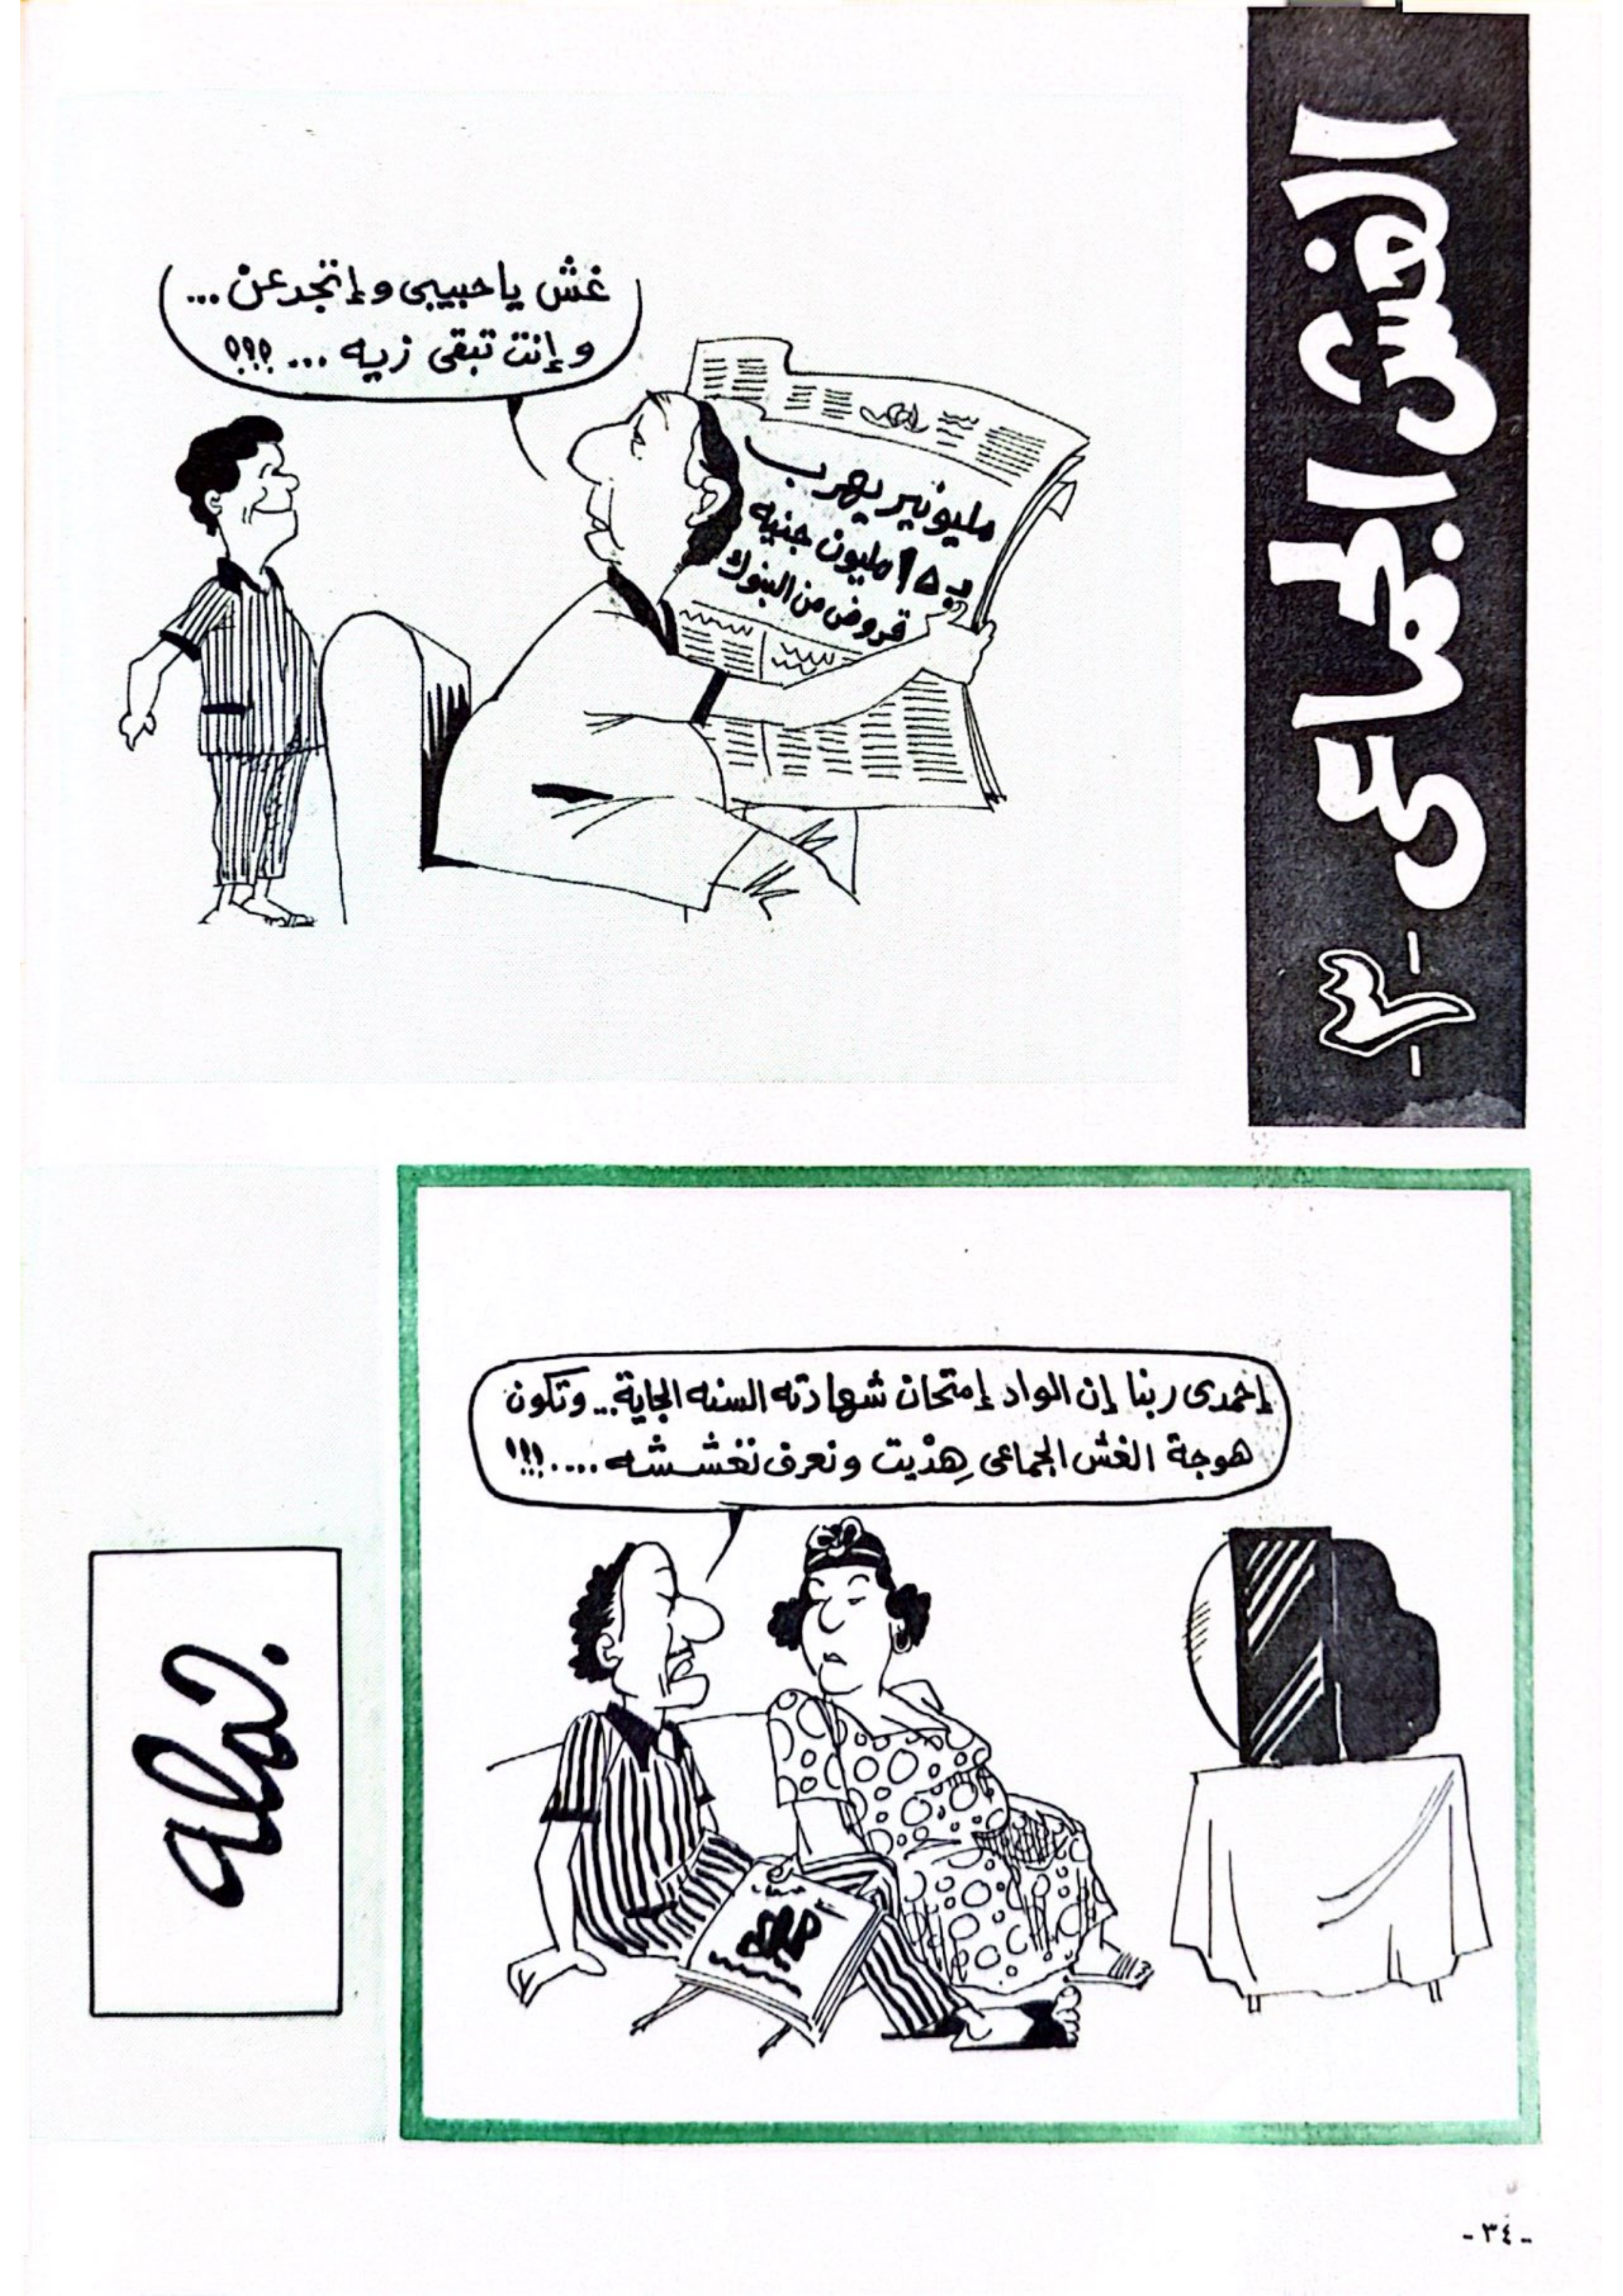 الغش الجماعى
-٣-
غش ياحبيبى وإتجدعن ...
وإنت تبقى زيه ... !؟!؟!؟
مليونير يهرب
بـ ١٥ مليون جنيه
قروض من البنوك
إحمدى ربنا إن الواد إمتحان شهادته السنه الجاية .. وتكون
هوجة الغش الجماعى هِدْيت ونعرف نغششه .... !!!
- ٣٤ -